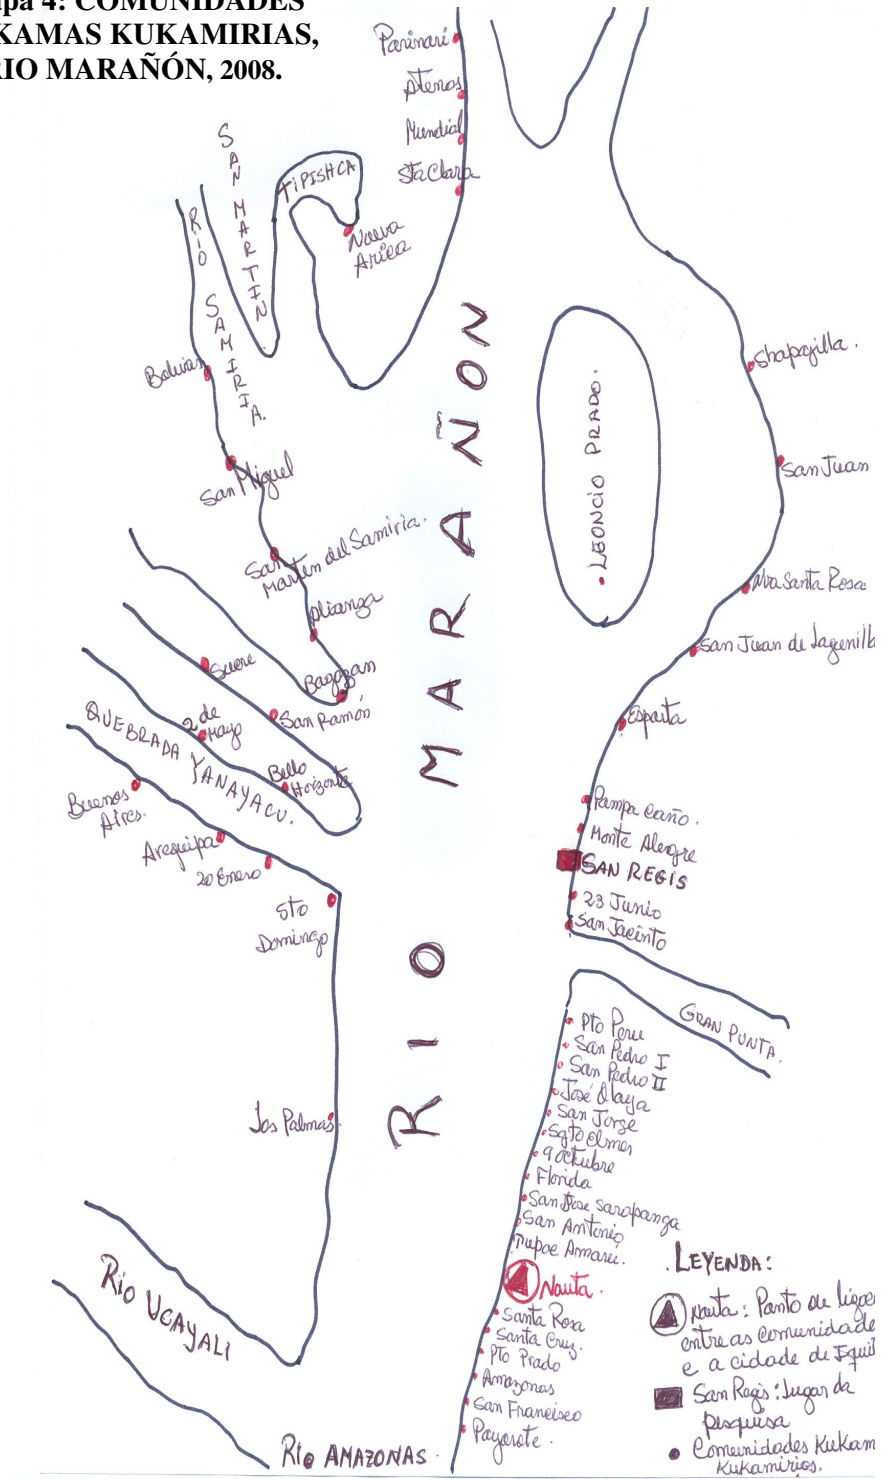 apa 4: COMUNIDADES
KAMAS KUKAMIRIAS,
RIO MARAÑÓN, 2008.
Parinari
Atenas
Mundial
Sta Clara
SAN MARTIN
TIPISHCA
Nueva
Arica
RIO SAMIRIA.
Bolivar
San Miguel
San
Martin del Samiria.
Alianza
Bagazan
Sucre
San Ramón
2 de
Mayo
Bello
Horizonte
QUEBRADA YANAYACU.
Buenos
Aires.
Arequipa
20 Enero
Sto
Domingo
Las Palmas
RIO MARAÑON
LEONCIO PRADO.
Shapajilla.
San Juan
Nva Santa Rosa
San Juan de Lagunill
Esparta
Pampa Caño.
Monte Alegre
SAN REGIS
23 Junio
San Jacinto
GRAN PUNTA.
Pto Peru
San Pedro I
San Pedro II
José Olaya
San Jorge
Sgto Elmer
9 octubre
Florida
San Jose Sarapanga
San Antonio
Tupac Amaru.
Nauta.
Santa Rosa
Santa Cruz.
Pto Prado
Amazonas
San Francisco
Payorote.
Rio UCAYALI
Rio AMAZONAS.
LEYENDA:
Nauta: Ponto de ligaç
entre as comunidade
e a cidade de Iquit
San Regis: Lugar da
pesquisa
Comunidades Kukam
Kukamirios.